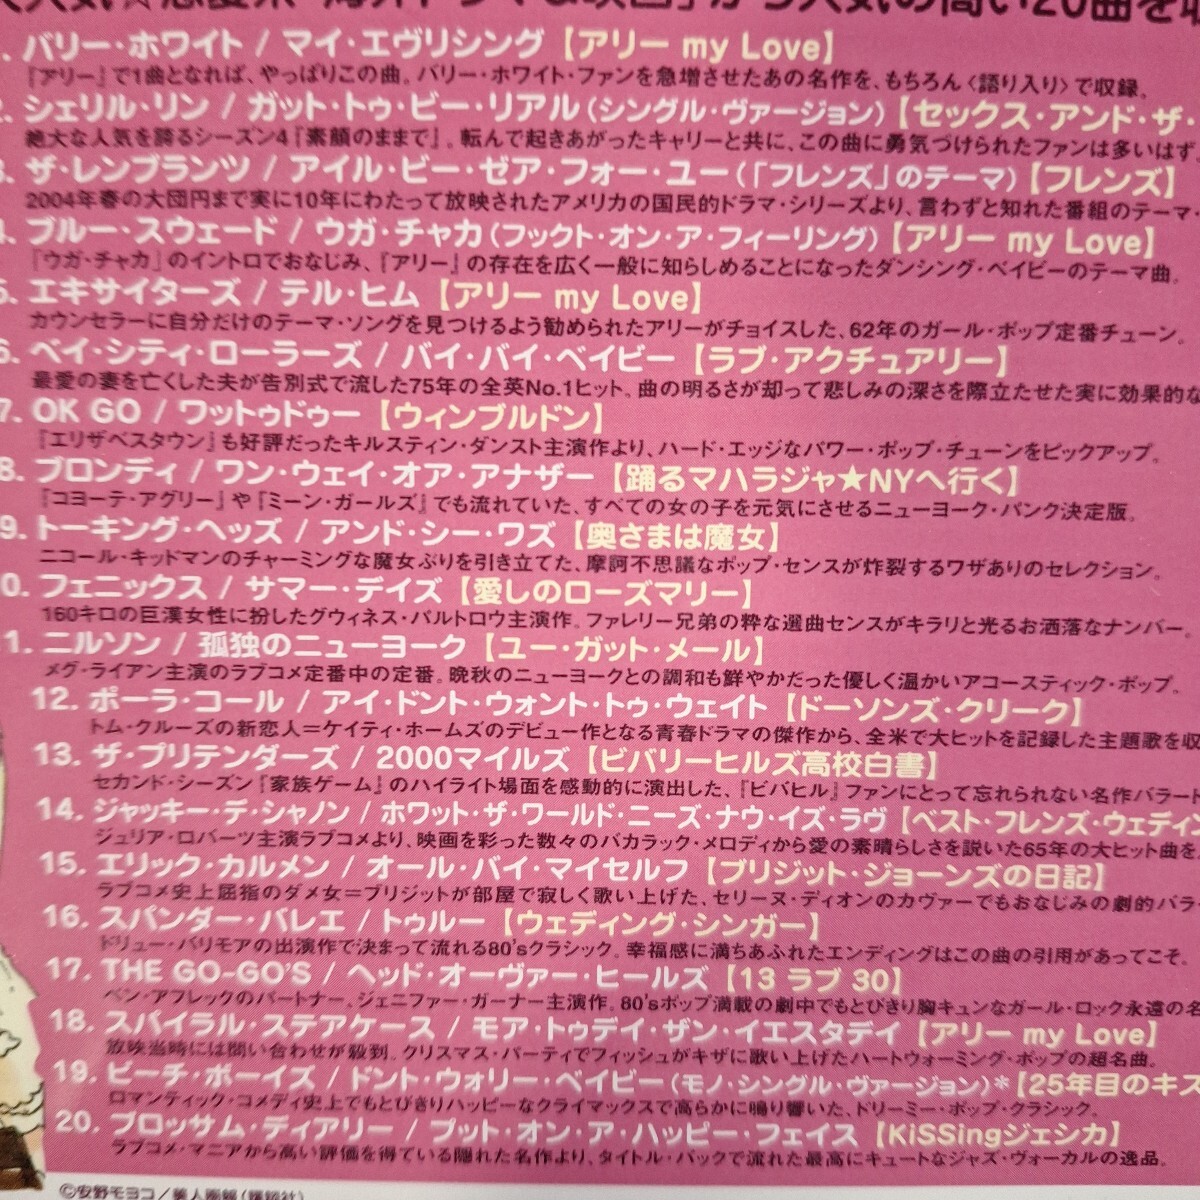 人気☆恋愛系「海外ドラマ&映画」から人気の高い20曲を収
1. バリー・ホワイト / マイ・エヴリシング【アリー my Love】
『アリー』で1曲となれば、やっぱりこの曲。バリー・ホワイト・ファンを急増させたあの名作を、もちろん〈語り入り〉で収録。
2. シェリル・リン / ガット・トゥ・ビー・リアル(シングル・ヴァージョン)【セックス・アンド・ザ・
絶大な人気を誇るシーズン4『素顔のままで』。転んで起きあがったキャリーと共に、この曲に勇気づけられたファンは多いはず。
3. ザ・レンブランツ / アイル・ビー・ゼア・フォー・ユー(「フレンズ」のテーマ)【フレンズ】
2004年春の大団円まで実に10年にわたって放映されたアメリカの国民的ドラマ・シリーズより、言わずと知れた番組のテーマ
4. ブルー・スウェード / ウガ・チャカ(フックト・オン・ア・フィーリング)【アリー my Love】
「ウガ・チャカ」のイントロでおなじみ、『アリー』の存在を広く一般に知らしめることになったダンシング・ベイビーのテーマ曲。
5. エキサイターズ / テル・ヒム【アリー my Love】
カウンセラーに自分だけのテーマ・ソングを見つけるよう勧められたアリーがチョイスした、62年のガール・ポップ定番チューン。
6. ベイ・シティ・ローラーズ / バイ・バイ・ベイビー【ラブ・アクチュアリー】
最愛の妻を亡くした夫が告別式で流した75年の全英No.1ヒット。曲の明るさが却って悲しみの深さを際立たせた実に効果的な
7. OK GO / ワットゥドゥー【ウィンブルドン】
『エリザベスタウン』も好評だったキルスティン・ダンスト主演作より、ハード・エッジなパワー・ポップ・チューンをピックアップ。
8. ブロンディ / ワン・ウェイ・オア・アナザー【踊るマハラジャ★NYへ行く】
『コヨーテ・アグリー』や『ミーン・ガールズ』でも流れていた、すべての女の子を元気にさせるニューヨーク・パンク決定版。
9. トーキング・ヘッズ / アンド・シー・ワズ【奥さまは魔女】
ニコール・キッドマンのチャーミングな魔女ぶりを引き立てた、摩訶不思議なポップ・センスが炸裂するワザありのセレクション。
0. フェニックス / サマー・デイズ【愛しのローズマリー】
160キロの巨漢女性に扮したグウィネス・パルトロウ主演作。ファレリー兄弟の粋な選曲センスがキラリと光るお洒落なナンバー。
1. ニルソン / 孤独のニューヨーク【ユー・ガット・メール】
メグ・ライアン主演のラブコメ定番中の定番。晩秋のニューヨークとの調和も鮮やかだった優しく温かいアコースティック・ポップ。
12. ポーラ・コール / アイ・ドント・ウォント・トゥ・ウェイト【ドーソンズ・クリーク】
トム・クルーズの新恋人=ケイティ・ホームズのデビュー作となる青春ドラマの傑作から、全米で大ヒットを記録した主題歌を収
13. ザ・プリテンダーズ / 2000マイルズ【ビバリーヒルズ高校白書】
セカンド・シーズン『家族ゲーム』のハイライト場面を感動的に演出した、『ビバヒル』ファンにとって忘れられない名作バラード
14. ジャッキー・デ・シャノン / ホワット・ザ・ワールド・ニーズ・ナウ・イズ・ラヴ【ベスト・フレンズ・ウェディ
ジュリア・ロバーツ主演ラブコメより、映画を彩った数々のバカラック・メロディから愛の素晴らしさを説いた65年の大ヒット曲を
15. エリック・カルメン / オール・バイ・マイセルフ【ブリジット・ジョーンズの日記】
ラブコメ史上屈指のダメ女=ブリジットが部屋で寂しく歌い上げた、セリーヌ・ディオンのカヴァーでもおなじみの劇的バラー
16. スパンダー・バレエ / トゥルー【ウェディング・シンガー】
ドリュー・バリモアの出演作で決まって流れる80'sクラシック。幸福感に満ちあふれたエンディングはこの曲の引用があってこそ。
17. THE GO-GO'S / ヘッド・オーヴァー・ヒールズ【13 ラブ 30】
ベン・アフレックのパートナー。ジェニファー・ガーナー主演作。80'sポップ満載の劇中でもとびきり胸キュンなガール・ロック永遠の名
18. スパイラル・ステアケース / モア・トゥデイ・ザン・イエスタデイ【アリー my Love】
放映当時には問い合わせが殺到。クリスマス・パーティでフィッシュがキザに歌い上げたハートウォーミング・ポップの超名曲。
19. ビーチ・ボーイズ / ドント・ウォリー・ベイビー(モノ・シングル・ヴァージョン)*【25年目のキス
ロマンティック・コメディ史上でもとびきりハッピーなクライマックスで高らかに鳴り響いた、ドリーミー・ポップ・クラシック。
20. ブロッサム・ディアリー / プット・オン・ア・ハッピー・フェイス【KiSSingジェシカ】
ラブコメ・マニアから高い評価を得ている隠れた名作より、タイトル・バックで流れた最高にキュートなジャズ・ヴォーカルの逸品。
©安野モヨコ/美人画報(講談社)